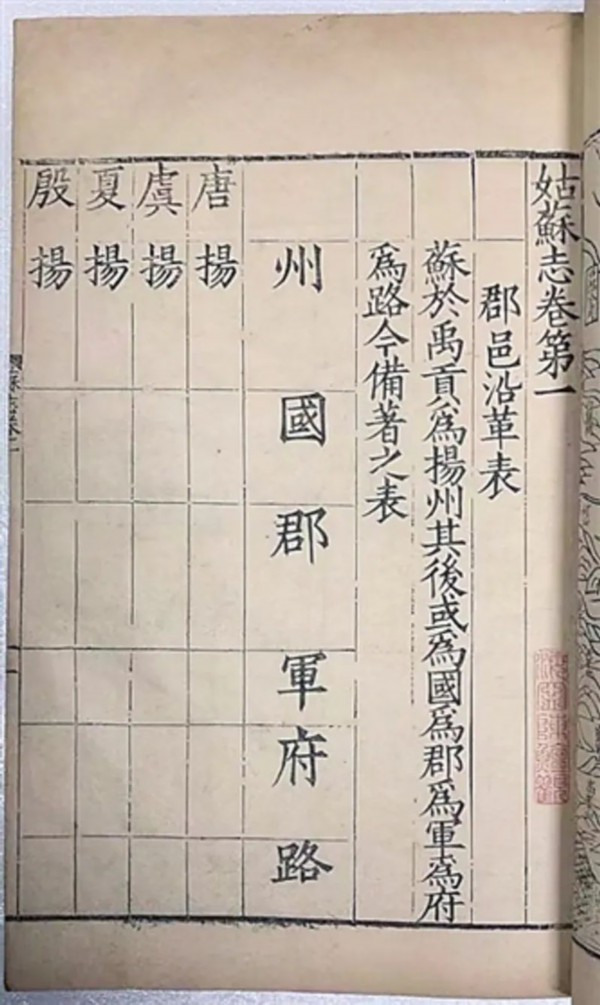 姑蘇志卷第一
郡邑沿革表
蘇於禹貢為揚州其後或為國為郡為軍為府
為路今備著之表
州 國 郡 軍 府 路
唐 揚
虞 揚
夏 揚
殷 揚